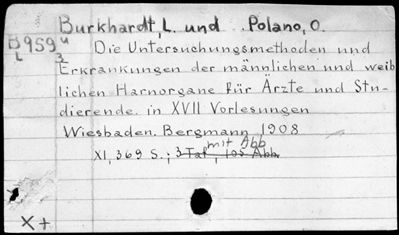 Burkhardt, L. und Polano, O.
B 959 u
L 3
Die Untersuchungsmethoden und
Erkrankungen der männlichen und weib
lichen Harnorgane für Ärzte und Stu-
dierende. in XVII Vorlesungen
Wiesbaden. Bergmann 1908
mit Abb
XI, 369 S.; 3 Taf, 105 Abb.
X+